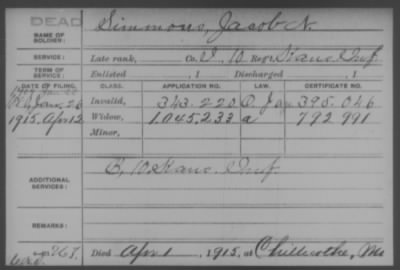 DEAD
NAME OF SOLDIER: Simmons, Jacob N.
SERVICE: Late rank, Co. D, 10 Reg't Kans Inf.
TERM OF SERVICE: Enlisted , 1 Discharged , 1
DATE OF FILING. CLASS. APPLICATION NO. LAW. CERTIFICATE NO.
Jan. 26 Invalid, 343.220 395.046
1915, Apr 12 Widow, 1.045.233 a 792 991
Minor,
ADDITIONAL SERVICES: 10 Kans. Inf.
REMARKS:
Died Apr 1 , 1915, at Chillicothe, Mo